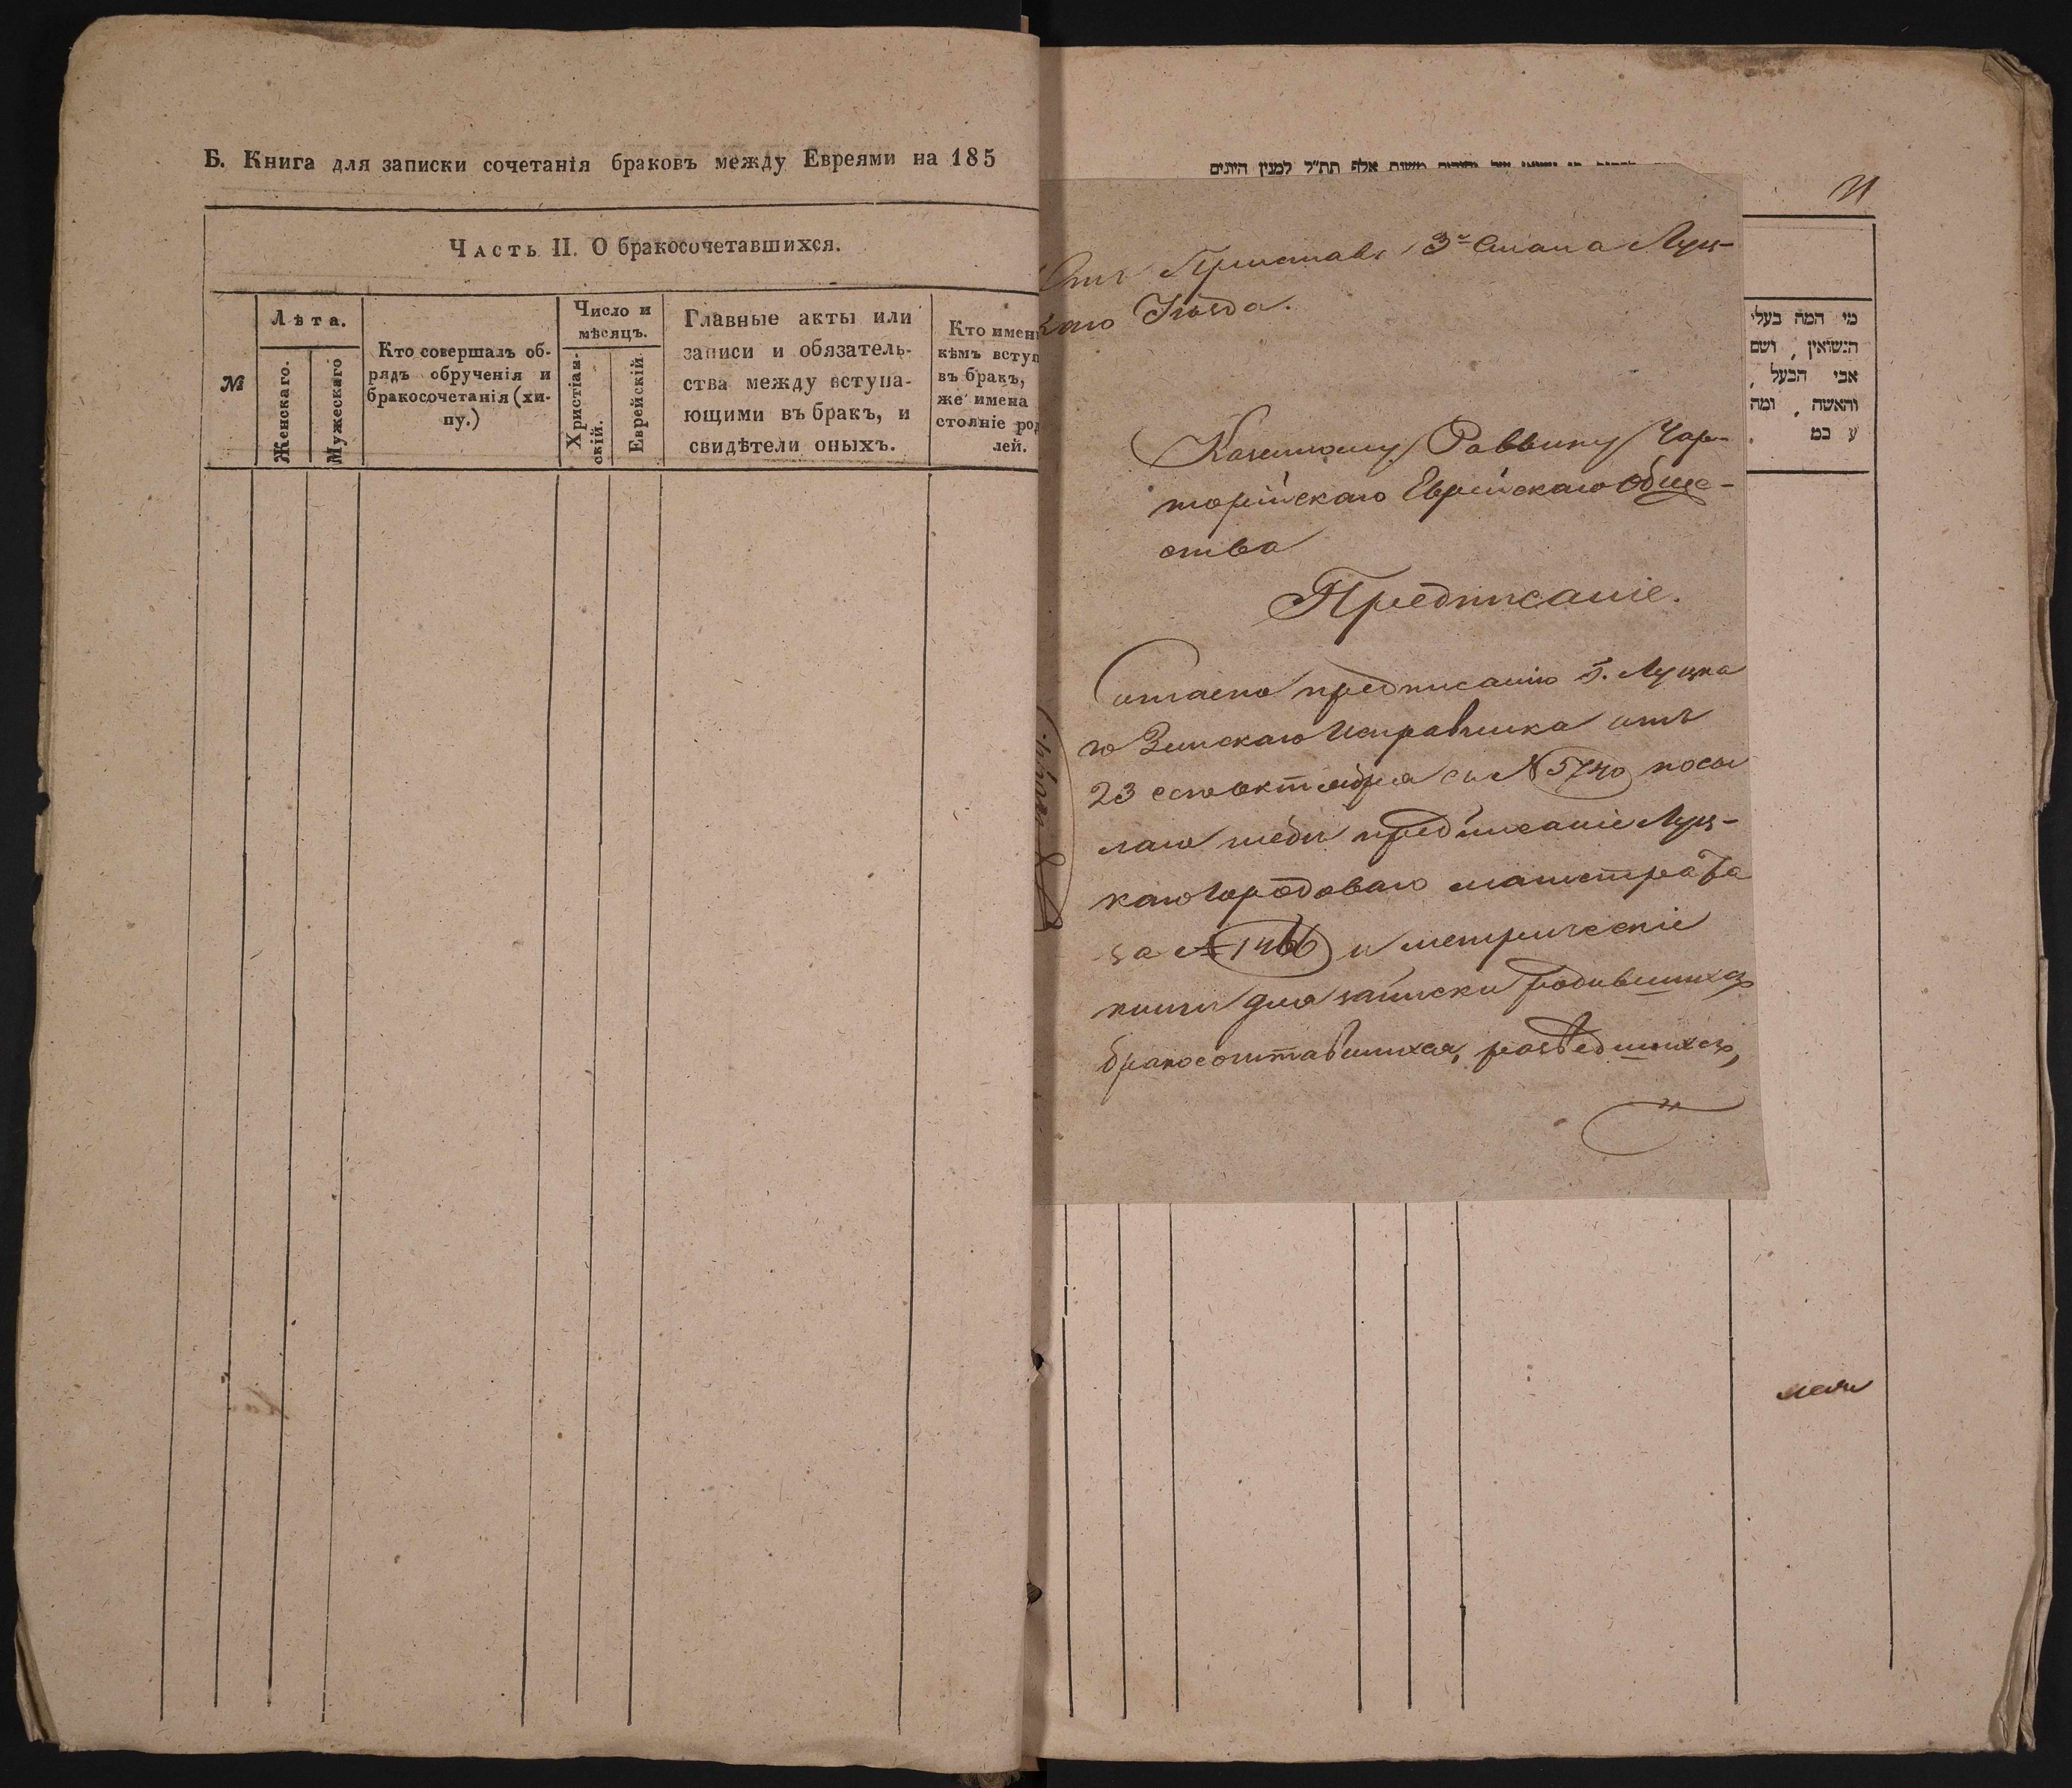 Б. Книга для записки сочетанія браковъ между Евреями на 185
Часть II. О бракосочетавшихся.
№
Лѣта.
Женскаго.
Мужескаго
Кто совершалъ об-
рядъ обрученія и
бракосочетанія (хи-
пу.)
Число и
мѣсяцъ.
Христіан-
скій.
Еврейскій
Главные акты или
записи и обязатель-
ства между вступа-
ющими въ бракъ, и
свидѣтели оныхъ.
Кто имен
кѣмъ вступ
въ бракъ,
же имена
стояніе род
лей.
משנת אלף תת״ל למנין היונים
Отъ Пристава 3го Стана Луц-
каго Уѣзда.
Казенному Раввину Чар-
торійскаго Еврейскаго Обще-
ства
Предписаніе.
Согласно предписанію Г. Луцка
го Земскаго Исправника отъ
23 сего октября за № 5740 посы
лаю тебѣ предписаніе Луц-
каго Городоваго магистрата
за № 1466 и метрическіе
книги для записки родившихся
бракосочитавшихся, разведшихся,
и
מי המה בעלי
הנשואין , ושם
אבי הבעל ,
והאשה , ומה
ע כמ .